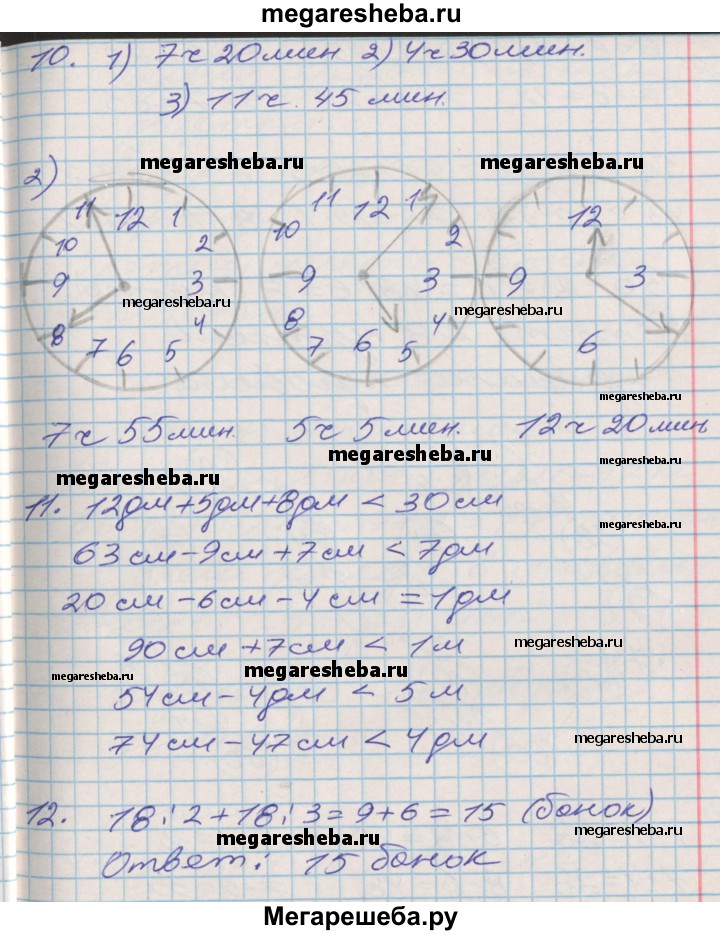 megaresheba.ru
10. 1) 7ч 20мин 2) 4ч 30мин.
3) 11ч. 45 мин.
megaresheba.ru megaresheba.ru
2)
11 12 1 11 12 1 12
10 2 10 2
9 3 9 3 9 3
megaresheba.ru megaresheba.ru
8 4 8 4
7 6 5 7 6 5 6
megaresheba.ru
7ч 55мин. 5ч 5мин. 12ч 20мин
megaresheba.ru megaresheba.ru
megaresheba.ru
11. 12дм+5дм+8дм < 30см
megaresheba.ru
63см-9см+7см < 7дм
20см-6см-4см = 1дм
90см+7см < 1м
megaresheba.ru
megaresheba.ru megaresheba.ru
54см-4дм < 5м
74см-47см < 4дм
megaresheba.ru
12. 18:2+18:3=9+6=15 (банок)
megaresheba.ru megaresheba.ru
Ответ: 15 банок
Мегарешеба.ру